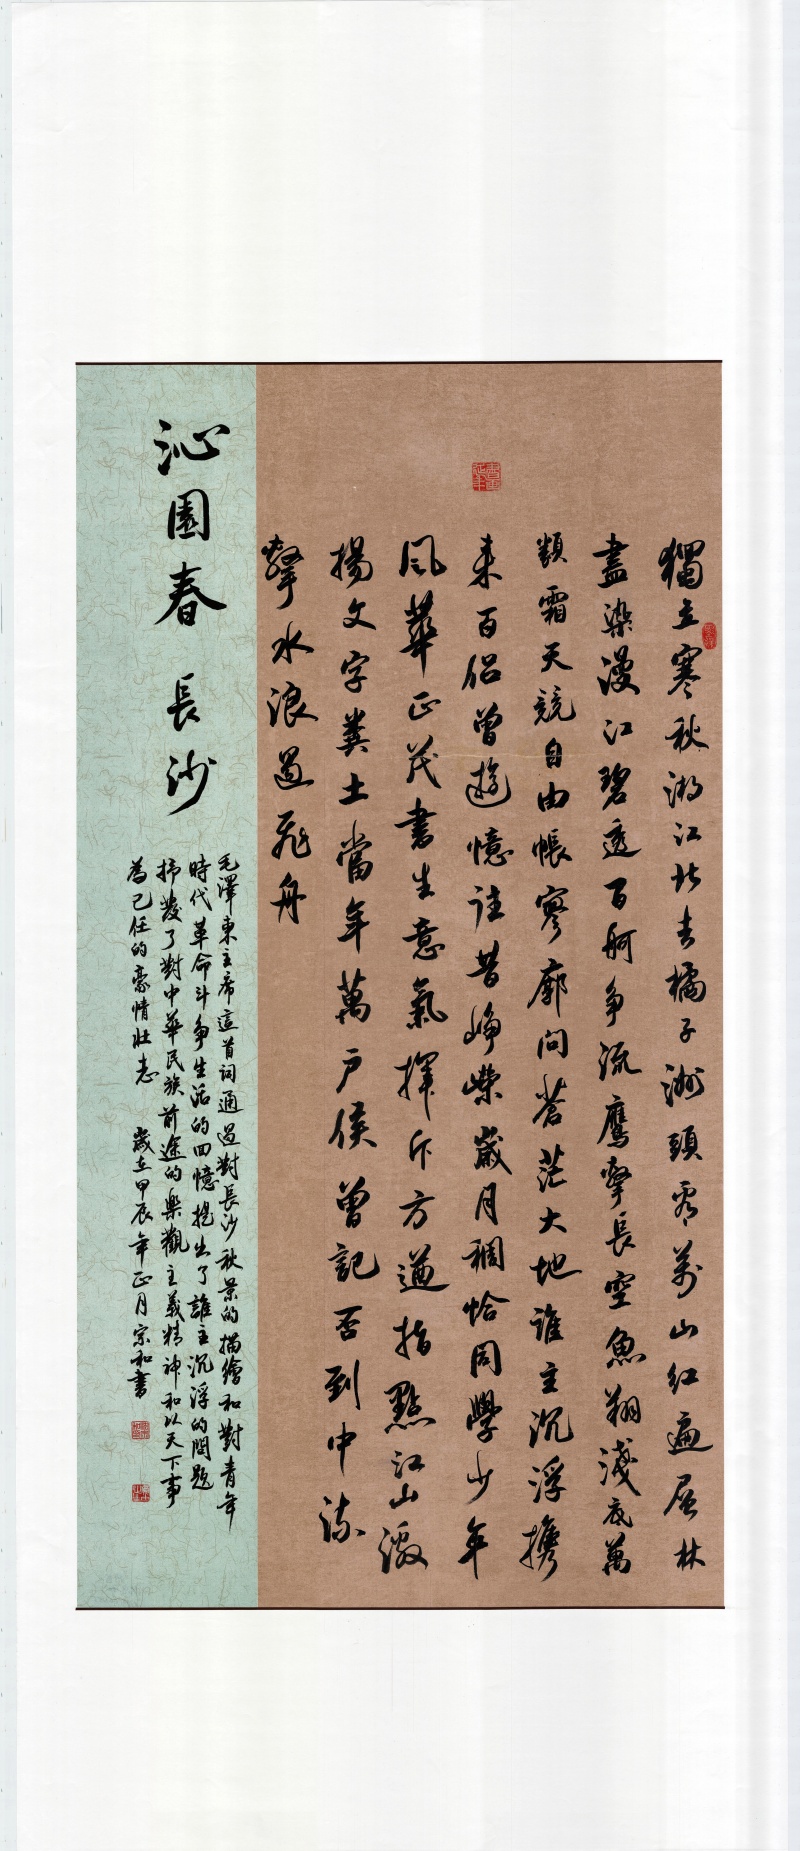 獨立寒秋湘江北去橘子洲頭看萬山紅遍層林
盡染漫江碧透百舸爭流鷹擊長空魚翔淺底萬
類霜天競自由悵寥廓問蒼茫大地誰主沉浮攜
來百侶曾遊憶往昔崢嶸歲月稠恰同學少年
風華正茂書生意氣揮斥方遒指點江山激
揚文字糞土當年萬戶侯曾記否到中流
擊水浪遏飛舟
沁園春 長沙
毛澤東主席這首詞通過對長沙秋景的描繪和對青年
時代革命斗爭生活的回憶提出了誰主沉浮的問題
抒發了對中華民族前途的樂觀主義精神和以天下事
為己任的豪情壯志 歲在甲辰年正月宗和書